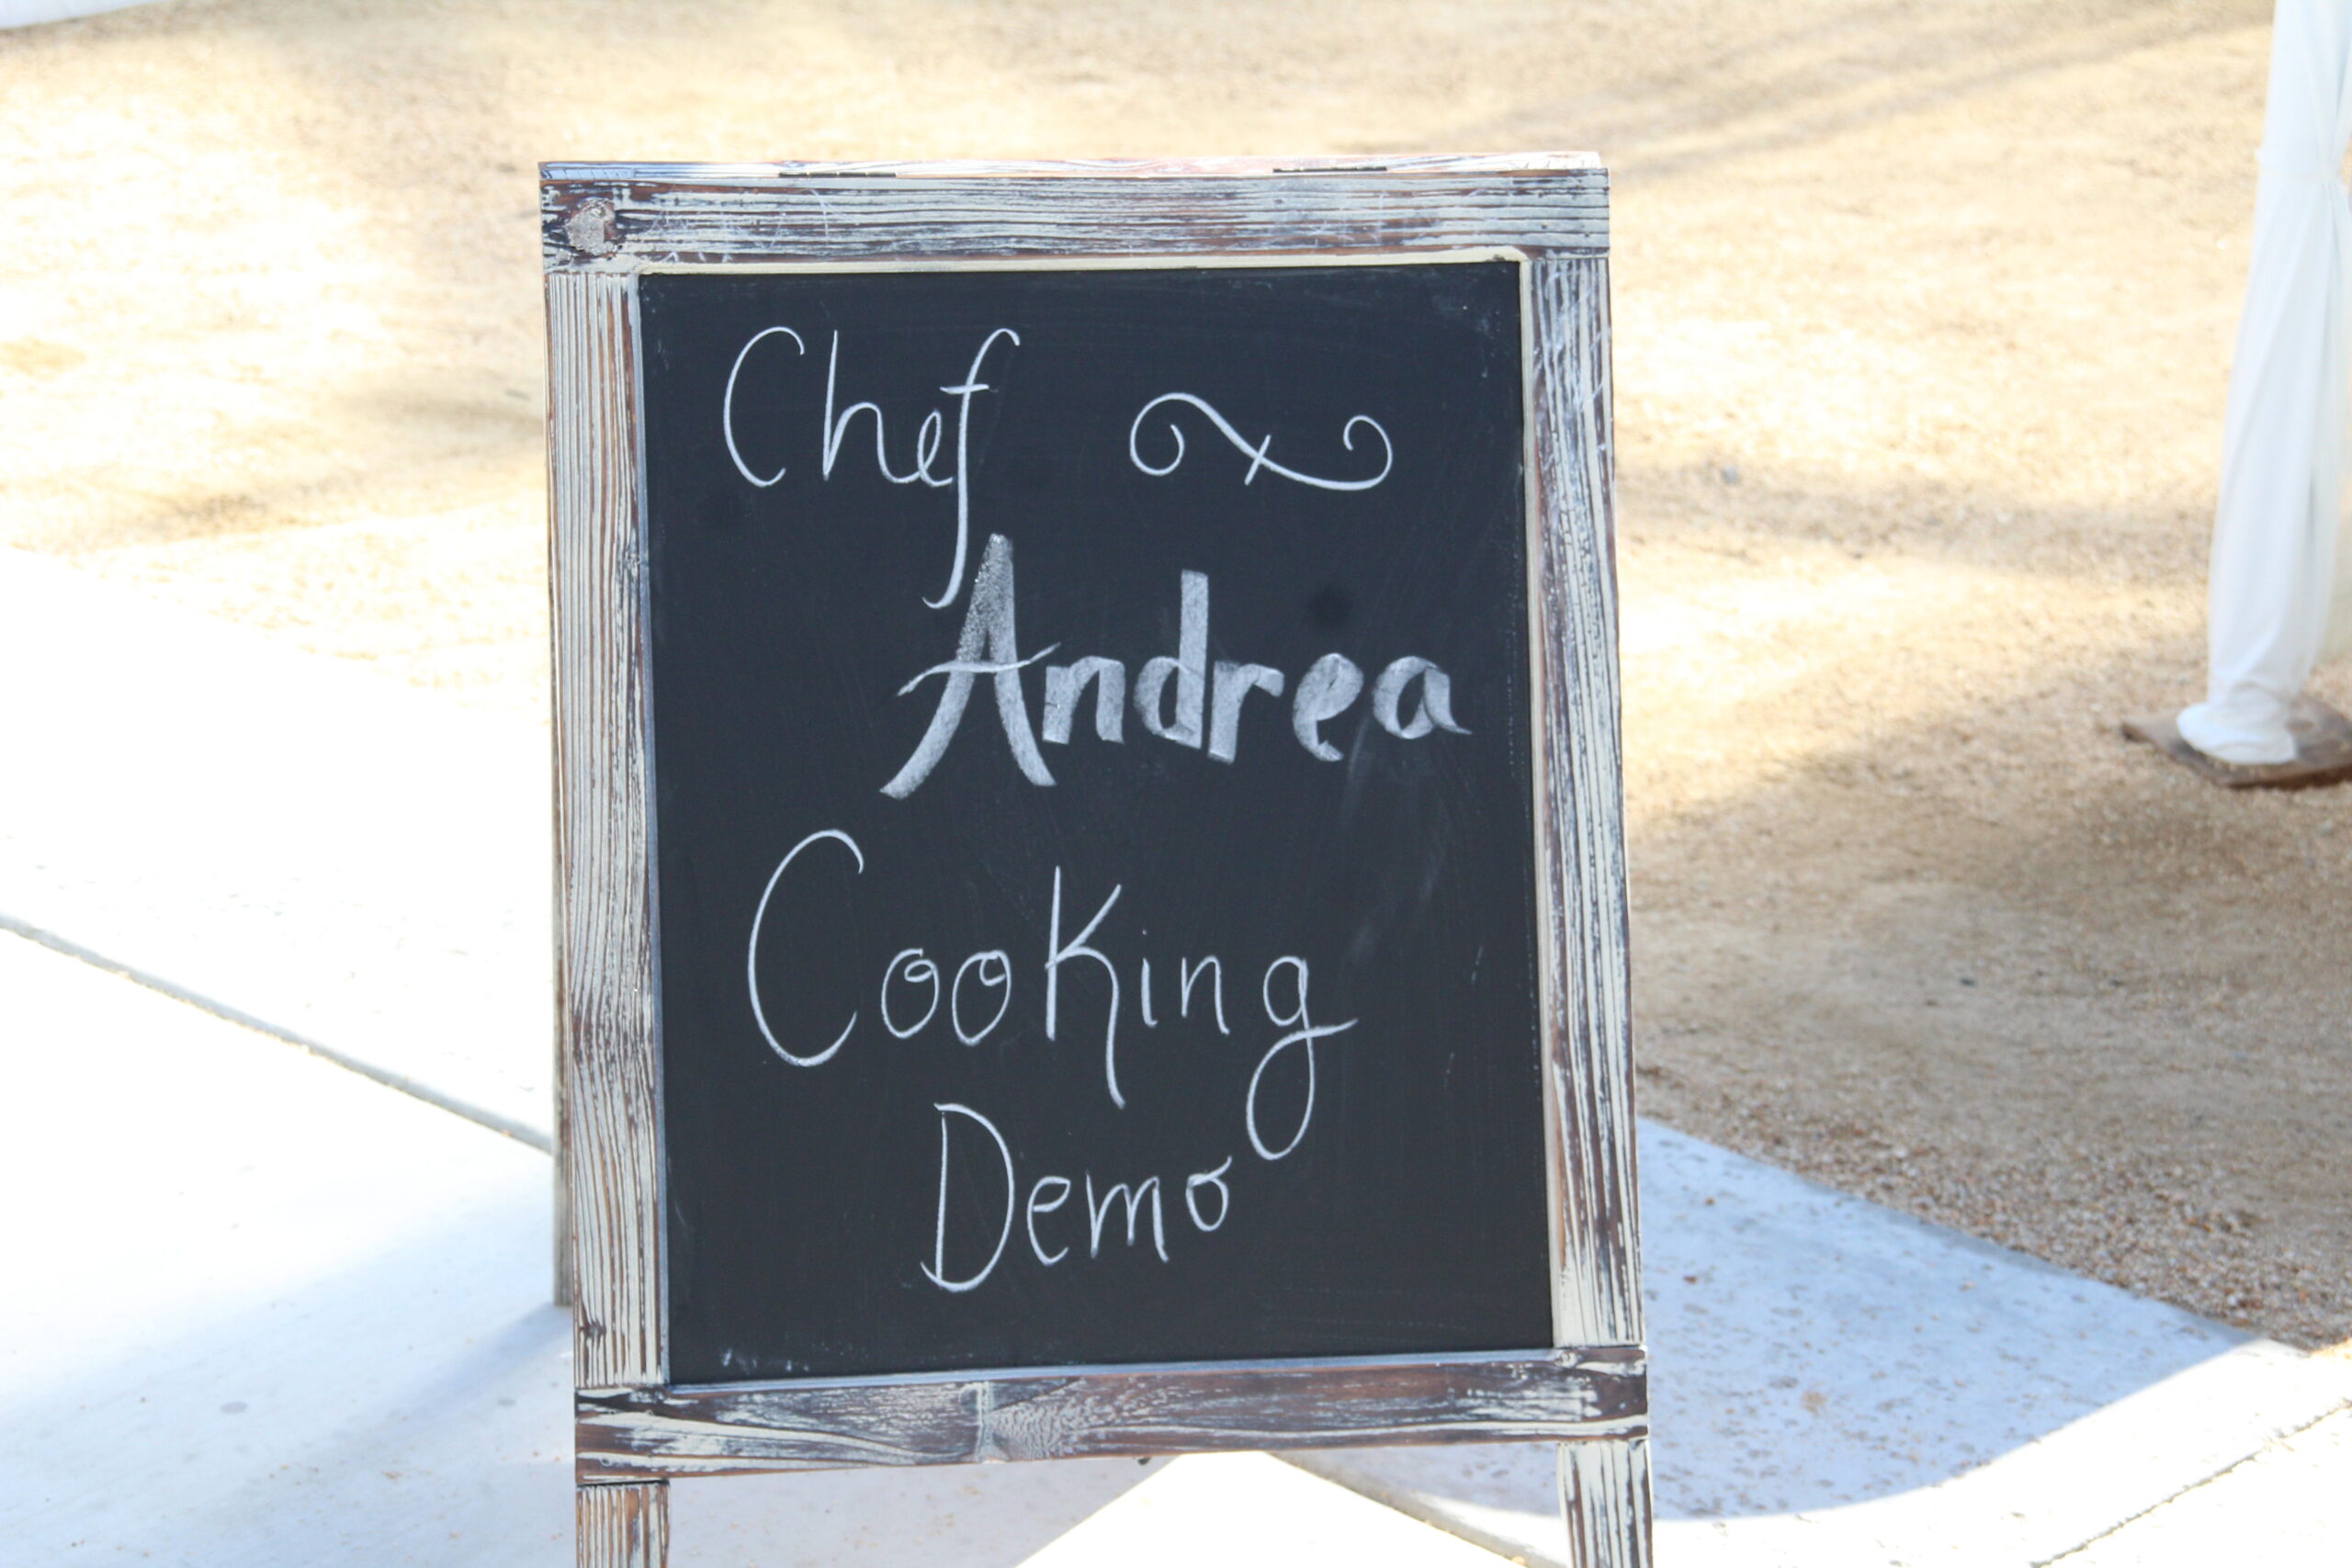 Chef
Andrea
Cooking
Demo